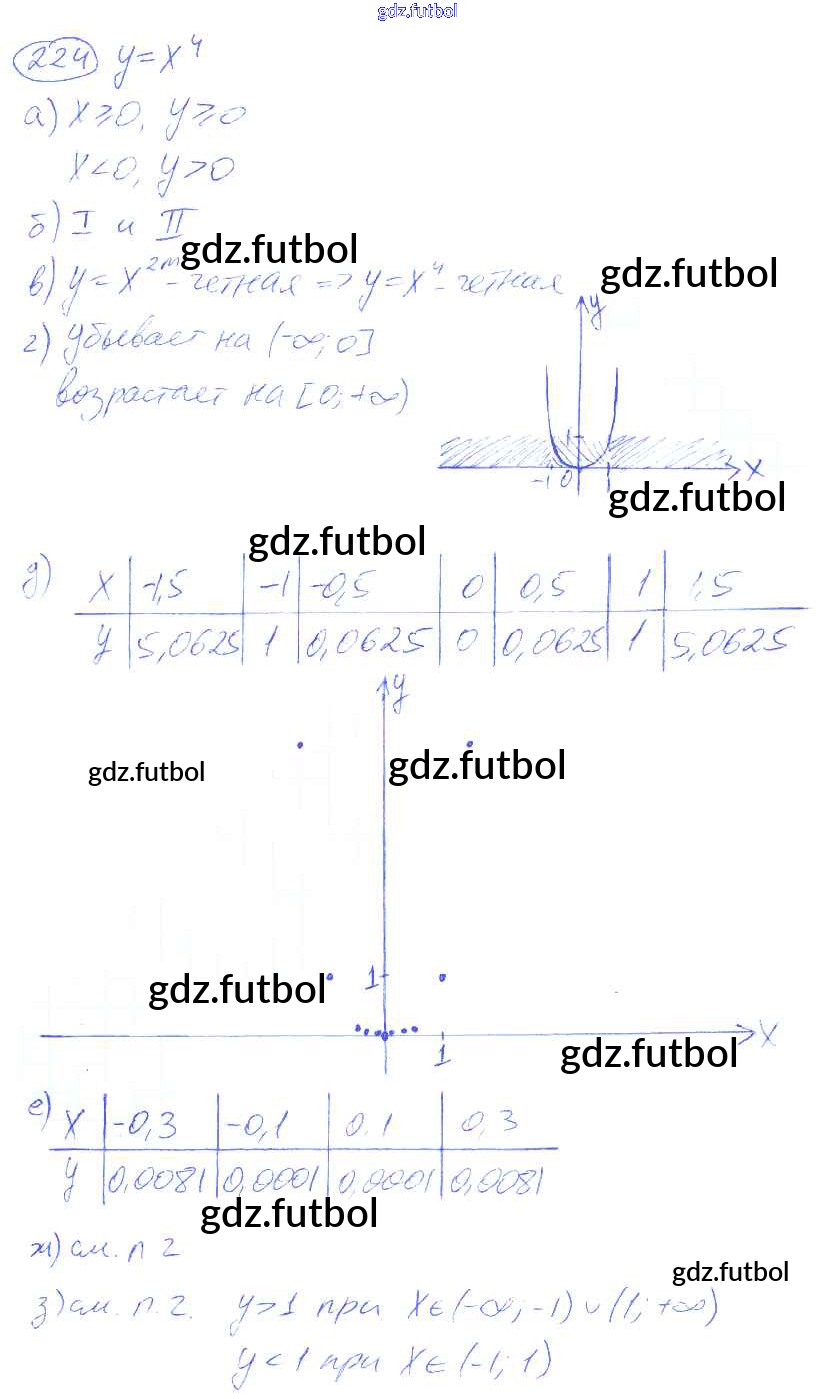 gdz.futbol
224 y=x⁴
а) x≥0, y≥0
x<0, y>0
б) I и II
gdz.futbol
в) y=x²ᵐ - четная => y=x⁴ - четная
gdz.futbol
г) убывает на (-∞; 0]
возрастает на [0; +∞)
y
1
-1 0 1 x
gdz.futbol
gdz.futbol
д) x | -1,5 | -1 | -0,5 | 0 | 0,5 | 1 | 1,5
y | 5,0625 | 1 | 0,0625 | 0 | 0,0625 | 1 | 5,0625
y
gdz.futbol gdz.futbol
gdz.futbol 1
x
1 gdz.futbol
е) x | -0,3 | -0,1 | 0,1 | 0,3
y | 0,0081 | 0,0001 | 0,0001 | 0,0081
gdz.futbol
ж) см. п г
gdz.futbol
з) см. п. г. y>1 при x∈(-∞; -1)∪(1; +∞)
y<1 при x∈(-1; 1)